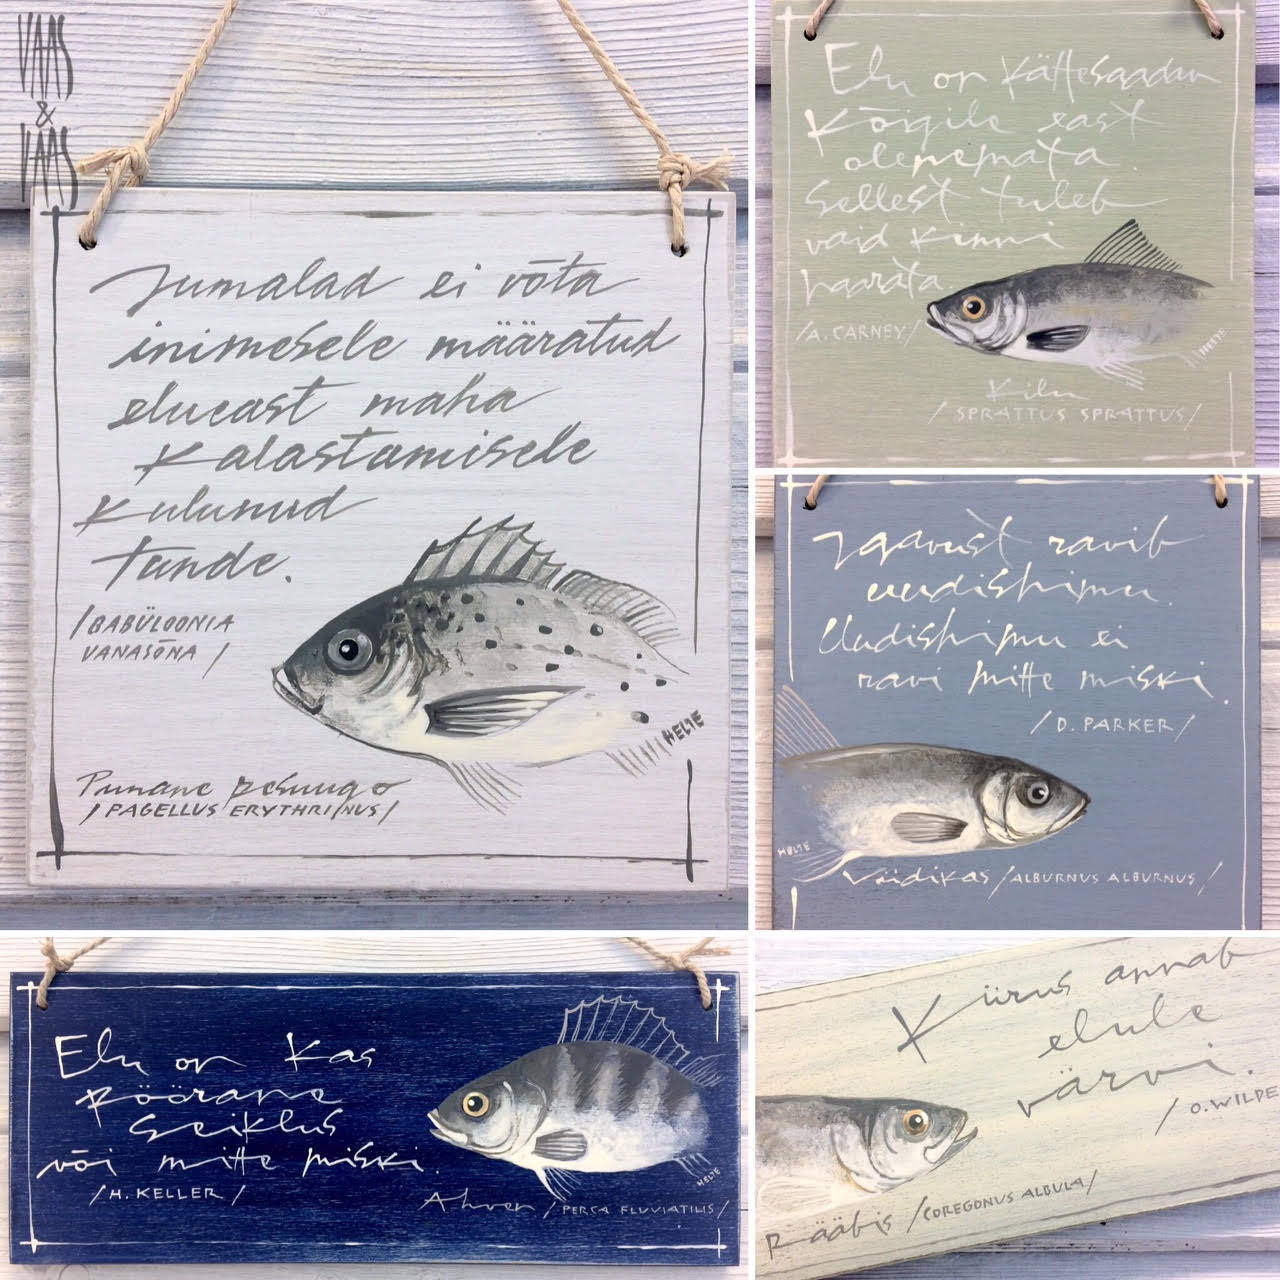 VAAS
&
VAAS
Jumalad ei võta
inimesele määratud
elueast maha
kalastamisele
kulunud
tunde.
/BABÜLOONIA
VANASÕNA/
HELTE
Punane pesuugo
/PAGELLUS ERYTHRINUS/
Elu on kättesaadav
kõigile east
olenemata.
Sellest tuleb
vaid kinni
haarata.
/A. CARNEY/
HELTE
Kilu
/SPRATTUS SPRATTUS/
Igavust ravib
uudishimu.
Uudishimu ei
ravi mitte miski.
/D. PARKER/
HELTE
Viidikas /ALBURNUS ALBURNUS/
Elu on kas
pöörane
seiklus
või mitte miski.
/H. KELLER/
HELTE
Ahven /PERCA FLUVIATILIS/
Kiirus annab
elule
värvi.
/O. WILDE
Rääbis /COREGONUS ALBULA/